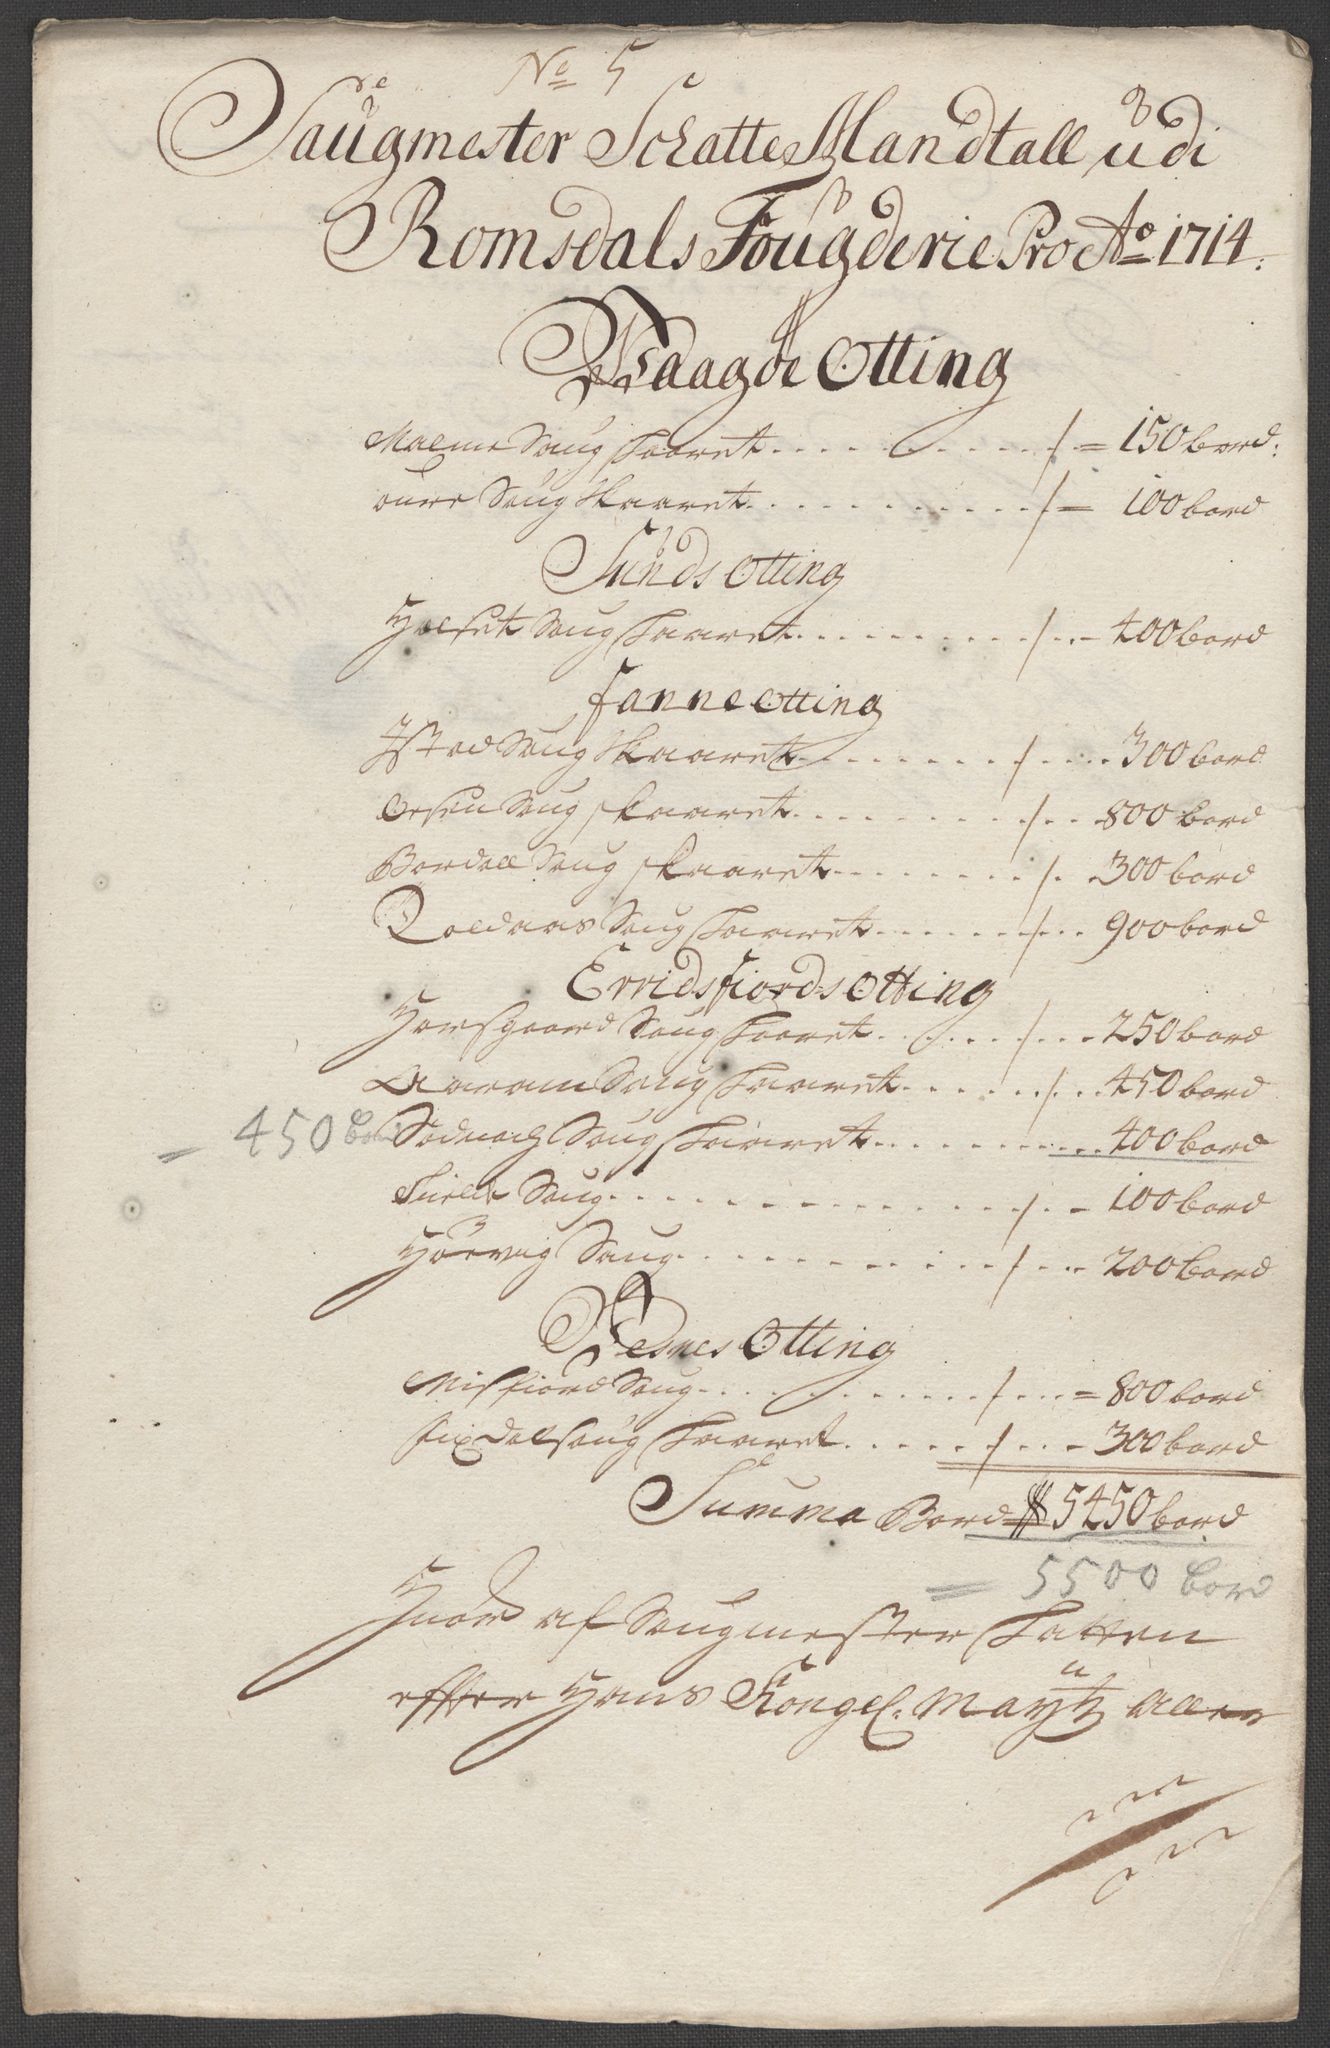 No 5
Saugmester Schatte Mandtall udi
Romsdals Fougderie Pro Ao 1714.
Waagøe Otting
Malme Saug skaaret - = 150 bord:
oure Saug skaaret - = 100 bord
Sunds Otting
Holset Saug skaaret - 400 bord
Fanne Otting
Istad Saug skaaret - 300 bord
Ørsen Saug skaaret - 800 bord
Bordall Saug skaaret - 300 bord
Roldaas Saug skaaret - 900 bord
Erridsfiords Otting
Horsgaard Saug skaaret - 250 bord
Aaram Saug skaaret - 450 bord
= 450 bord Saug skaaret - 400 bord
Saug - 100 bord
Saug - 200 bord
Nesnes Otting
Misfiord Saug - = 800 bord
fixdal saug skaaret - 300 bord
Summa Bord 5450 bord
= 5500 bord
Huor af Saugmester skatten
effter Hans Kongel. Maytz aller